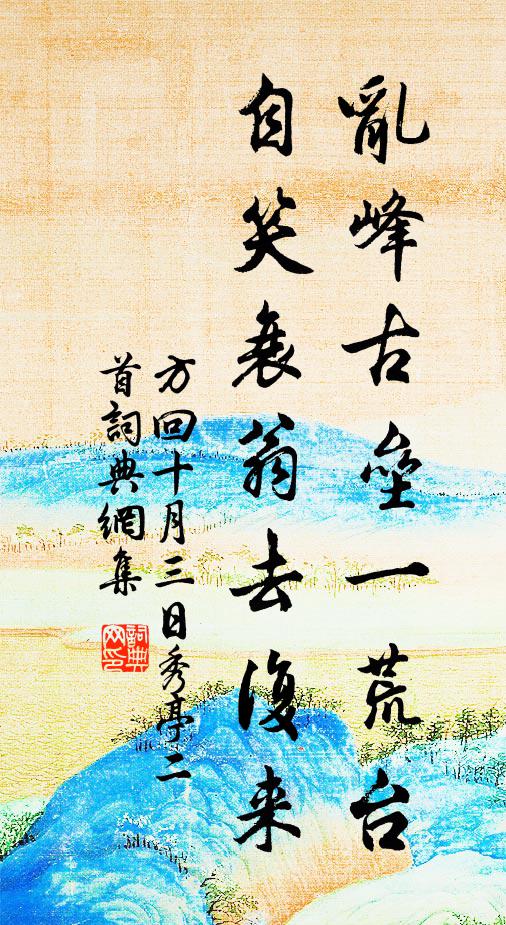 亂峰古壘一荒台
自笑衰翁去復来
方回十月三日秀亭二
首詞典網集
詞典
网印